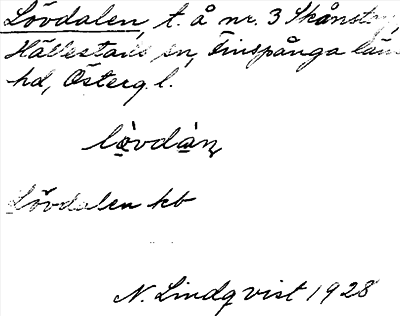 Lövdalen, t. å nr. 3 Skånstorp,
Hällestads sn, Finspånga läns
hd, Österg. l.
lö̀vdàn,
Lövdalen kb
N. Lindqvist 1928